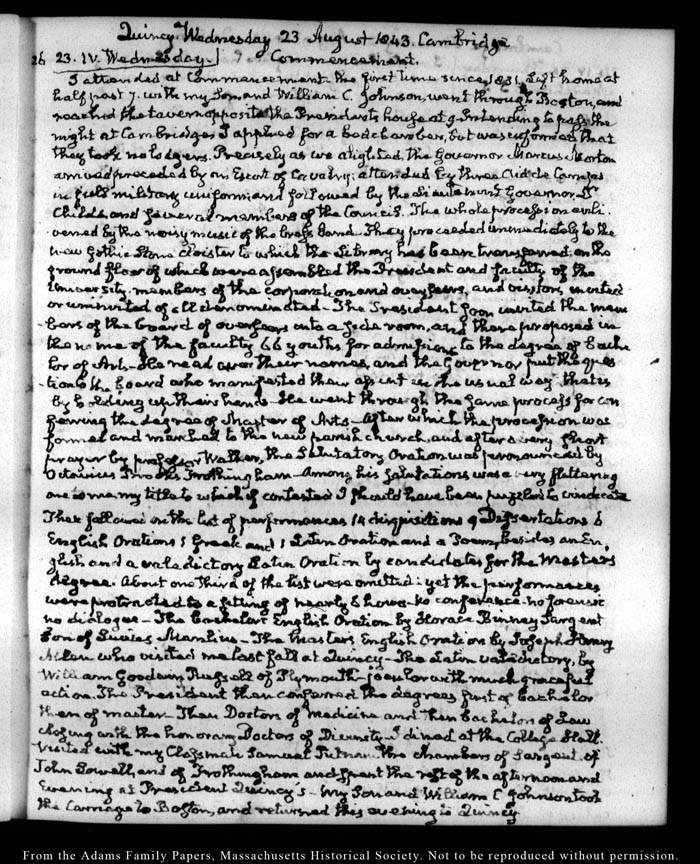 Quincy Wednesday 23 August 1843. Cambridge
26 23. IV. Wednesday. Commencement.
I attended at Commencement the first time since 1831. Left home at
half past 7. with my Son and William C. Johnson, went through Boston, and
reached the tavern opposite the Presidents house at 9. Intending to pass the
night at Cambridge, I applied for a bedchamber, but was informed that
they took no lodgers. Precisely as we alighted, the Governor Marcus Morton
arrived preceded by an Escort of Cavalry; attended by three Aids de Camps
in full military uniform; and followed by the Lieutenant Governor Dr
Childs, and several members of the Council. The whole procession enli-
vened by the noisy music of the brass band. They proceeded immediately to the
new Gothic Stone cloister to which the Library has been transferred, on the
ground floor of which were assembled the President and faculty of the
University, members of the corporation and overseers, and visitors invited
or uninvited of all denominated - The President soon invited the mem
bers of the board of overseers into a side room, and there proposed in
the name of the faculty 66 youths for admission to the degree of Bache
lor of Arts - He read over their names, and the Governor put the ques
tion to the board who manifested their assent in the usual way that is
by holding up their hands - He went through the same process for con
ferring the degree of Master of Arts - After which the procession was
formed and marched to the new parish church, and after a very short
prayer by professor Walker, the Salutatory Oration was pronounced by
Octavius Brooks Frothingham - Among his salutations was a very flattering
one to me my title to which if contested I should have been puzzled to vindicate
Then followed on the list of performances 14 disquisitions 9 Dissertations 6
English Orations 1 Greek and 1 Latin Oration and a Poem, besides an En-
glish and a valedictory Latin Oration by candidates for the Masters
degree. About one third of the list were omitted: yet the performances
were protracted to a sitting of nearly 6 hours - no conference - no forensic
no dialogue - The Bachelors English Oration by Horace Binney Sargent
Son of Lucius Manlius - The Masters English Oration by Joseph Henry
Allen who visited me last fall at Quincy - The Latin valedictory, by
William Goodwin Russell of Plymouth - jocular with much graceful
action. The President then conferred the degrees first of bachelor
then of master - Then Doctors of Medicine and then bachelors of Law
closing with the honorary Doctors of Divinity. I dined at the College Hall.
Visited with my Classmate Samuel Putnam the chambers of Sargent of
John Lowell, and of Frothingham and spent the rest of the afternoon and
Evening at President Quincy's - My Son and William C Johnson took
the Carriage to Boston, and returned this evening to Quincy
From the Adams Family Papers, Massachusetts Historical Society. Not to be reproduced without permission.